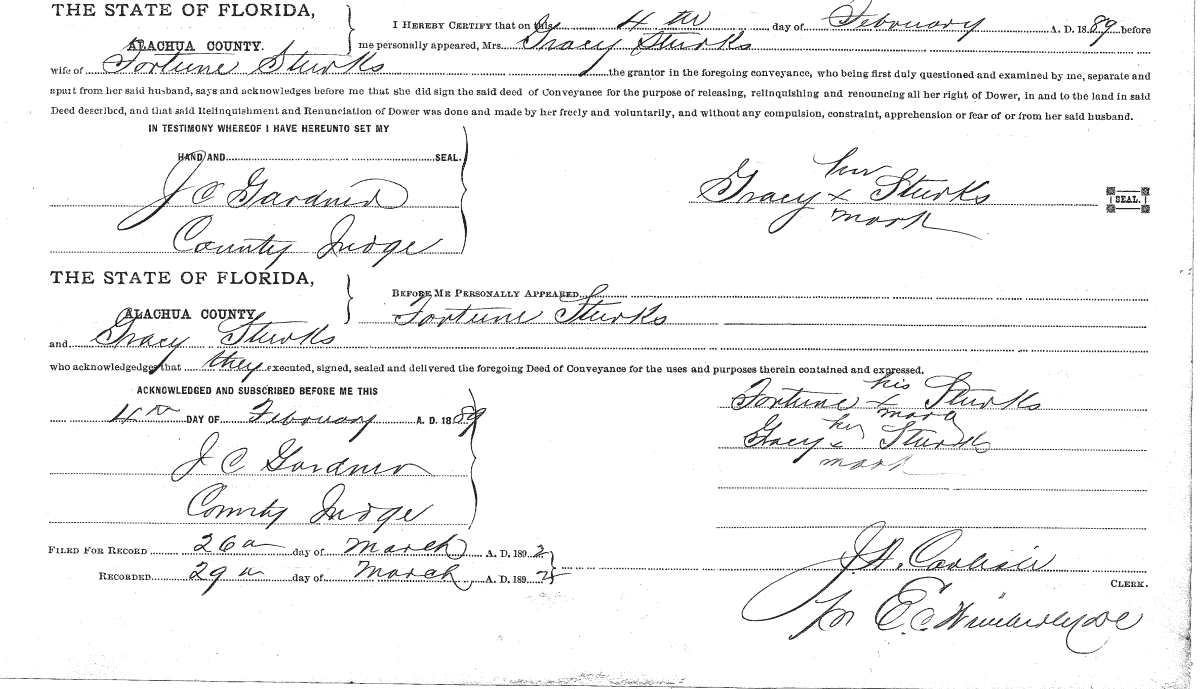 THE STATE OF FLORIDA,
I HEREBY CERTIFY that on this 4th day of February A. D. 1889 before
ALACHUA COUNTY.
me personally appeared, Mrs. Gracy Sturks
wife of Fortune Sturks the grantor in the foregoing conveyance, who being first duly questioned and examined by me, separate and
apart from her said husband, says and acknowledges before me that she did sign the said deed of Conveyance for the purpose of releasing, relinquishing and renouncing all her right of Dower, in and to the land in said
Deed described, and that said Relinquishment and Renunciation of Dower was done and made by her freely and voluntarily, and without any compulsion, constraint, apprehension or fear of or from her said husband.
IN TESTIMONY WHEREOF I HAVE HEREUNTO SET MY
HAND AND SEAL.
J C Gardner
County Judge
her
Gracy x Sturks
mark
SEAL.
THE STATE OF FLORIDA,
BEFORE ME PERSONALLY APPEARED
ALACHUA COUNTY
Fortune Sturks
and Gracy Sturks
who acknowledged that they executed, signed, sealed and delivered the foregoing Deed of Conveyance for the uses and purposes therein contained and expressed.
ACKNOWLEDGED AND SUBSCRIBED BEFORE ME THIS
4th DAY OF February A. D. 1889
J C Gardner
County Judge
his
Fortune x Sturks
mark
her
Gracy x Sturks
mark
FILED FOR RECORD 26 day of March A. D. 1892
RECORDED 29 day of March, A. D. 1892
J. A. Carlisle
CLERK.
Per E. C. Wimberly DC